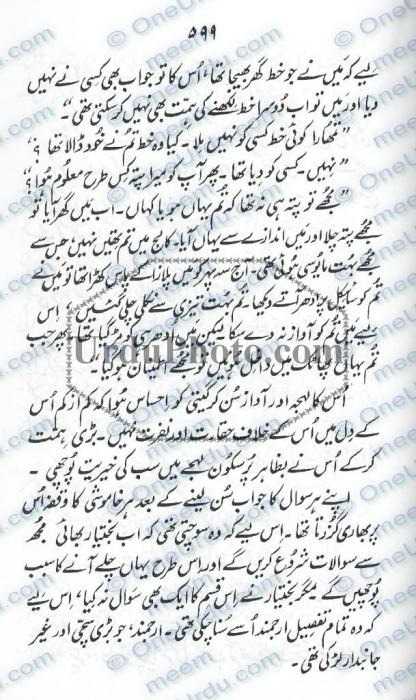 ۵۹۹
لیے کہ مَیں نے جو خط گھر بھیجا تھا، اُس کا تو جواب بھی کسی نے نہیں
دیا اور مَیں تو اب دُوسرا خط لکھنے کی ہمّت بھی نہیں کر سکتی تھی۔"
"تمھارا کوئی خط کسی کو نہیں ملا۔ کیا وہ خط تم نے خُود ڈالا تھا؟"
"نہیں۔ کسی کو دیا تھا۔ پھر آپ کو میرا پتہ کس طرح معلُوم ہُوا؟"
"مجھے تو پتہ ہی نہ تھا کہ تم یہاں ہو یا کہاں۔ اب مَیں گھر آیا تو
مجھے پتہ چلا اور مَیں اندازے سے یہاں آیا۔ کالج میں تم تھیں نہیں جس سے
مجھے بہت مایُوسی ہُوئی تھی۔ آج سہ پہر کو میں پلازا کے پاس کھڑا تھا تو مَیں نے
تم کو سائیکل پر اِدھر آتے دیکھا۔ تم بہت تیزی سے نکلی چلی گئیں، اِس
لیے میں تم کو آواز نہ دے سکا لیکن مَیں اِدھر ہی کو مُڑ گیا تھا اور جب
تم یہاں پھاٹک میں داخل ہوئیں تو مجھے اطمینان ہو گیا۔"
اُس کا لہجہ اور آواز سُن کر گیتی کو احساس ہُوا کہ کم از کم اُس
کے دِل میں اُس کے خلاف حقارت اور نفرت نہیں۔ بڑی ہمّت
کر کے اُس نے بظاہر پُر سکون لہجے میں سب کی خیریت پُوچھی۔
اپنے ہر سوال کا جواب سُن لینے کے بعد ہر خاموشی کا وقفہ اُس
پر بھاری گُزرتا تھا۔ اِس لیے کہ وہ سوچتی تھی کہ اب بختیار بھائی مجھ
سے سوالات شروع کریں گے اور اِس طرح یہاں چلے آنے کا سبب
پُوچھیں گے مگر بختیار نے اِس قِسم کا ایک بھی سوال نہ کیا، اِس لیے
کہ وہ تمام تفصیل ارجمند اُسے سُنا چکی تھی۔ ارجمند، جو بڑی سچّی اور غیر
جانبدار لڑکی تھی۔
UrduPhoto.com
OneUrdu.com